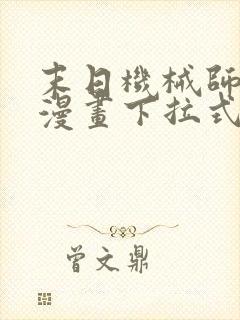 末日機械師
漫畫下拉式
曾文鼎